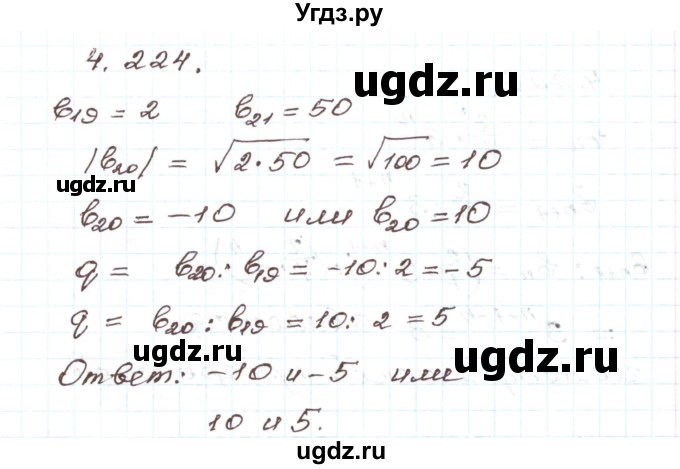 Угдз.ру
4.224.
ugdz.ru
b₁₉ = 2 b₂₁ = 50
|b₂₀| = √2·50 = √100 = 10
ugdz.ru
b₂₀ = -10 или b₂₀ = 10
ugdz.ru
q = b₂₀ : b₁₉ = -10 : 2 = -5
q = b₂₀ : b₁₉ = 10 : 2 = 5
ugdz.ru
ugdz.ru
Ответ: -10 и -5 или
10 и 5.
ugdz.ru